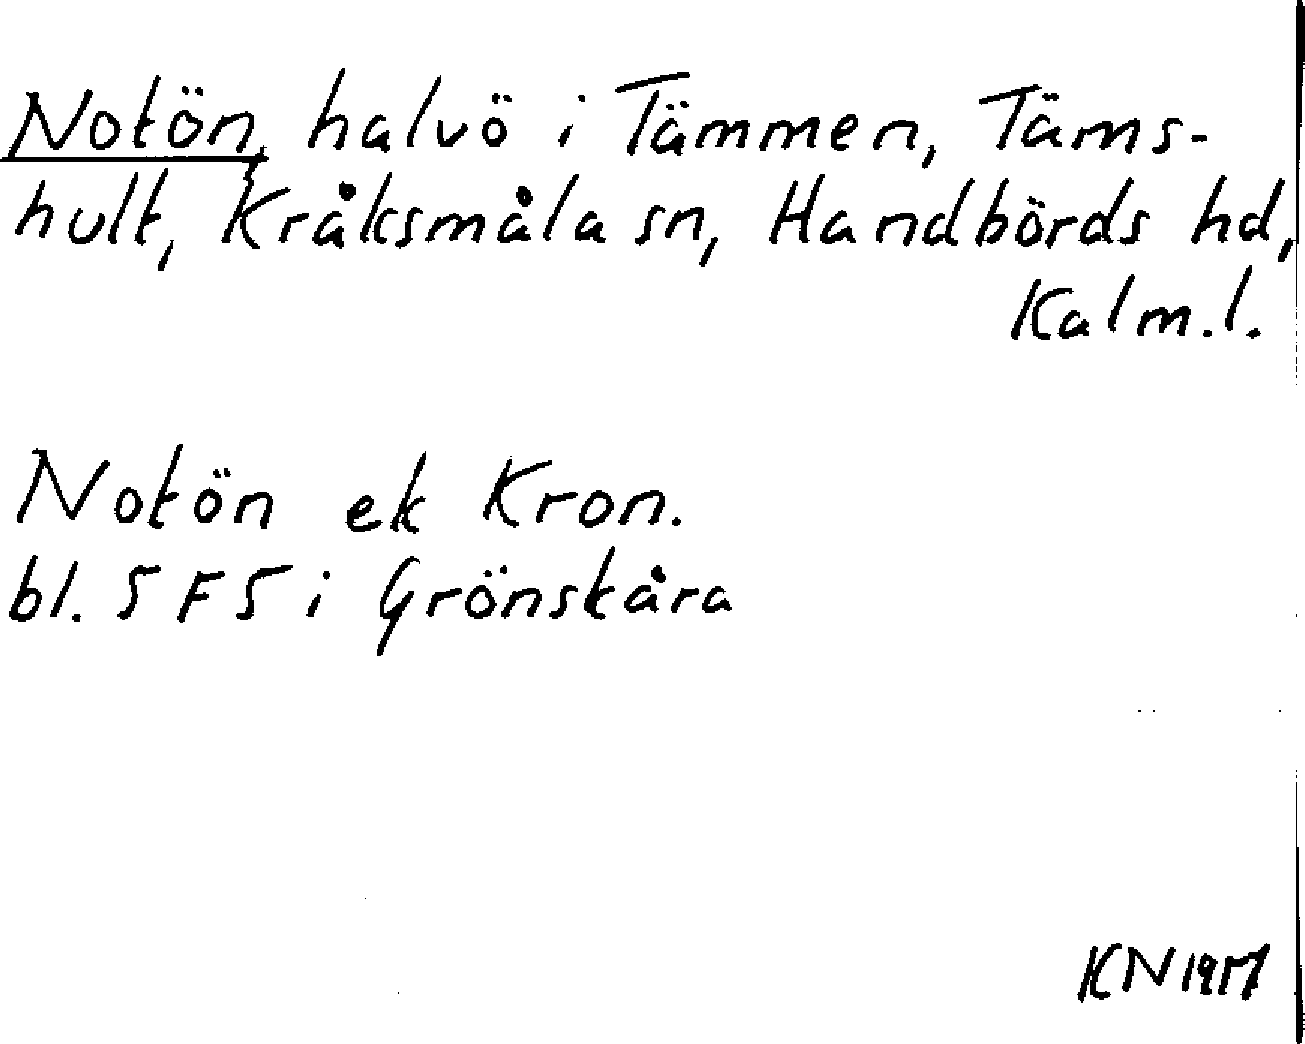 Notön, halvö i Tämmen, Täms-
hult, Kråksmåla sn, Handbörds hd,
Kalm.l.
Notön ek Kron.
bl. 5 F 5 i Grönskåra
KN